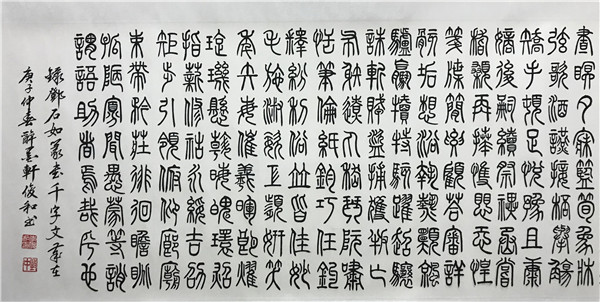 晝眠夕寐藍筍象床
弦歌酒讌接杯舉觴
矯手頓足悅豫且康
嫡後嗣續祭祀烝嘗
稽顙再拜悚懼恐惶
箋牒簡要顧答審詳
骸垢想浴執熱願涼
驢騾犢特駭躍超驤
誅斬賊盜捕獲叛亡
布射遼丸嵇琴阮嘯
恬筆倫紙鈞巧任釣
釋紛利俗並皆佳妙
毛施淑姿工顰妍笑
年矢每催曦暉朗曜
璇璣懸斡晦魄環照
指薪修祜永綏吉劭
矩步引領俯仰廊廟
束帶矜莊徘徊瞻眺
孤陋寡聞愚蒙等誚
謂語助者焉哉乎也
錄鄧石如篆書千字文歲在
庚子仲春醉墨軒俊和書